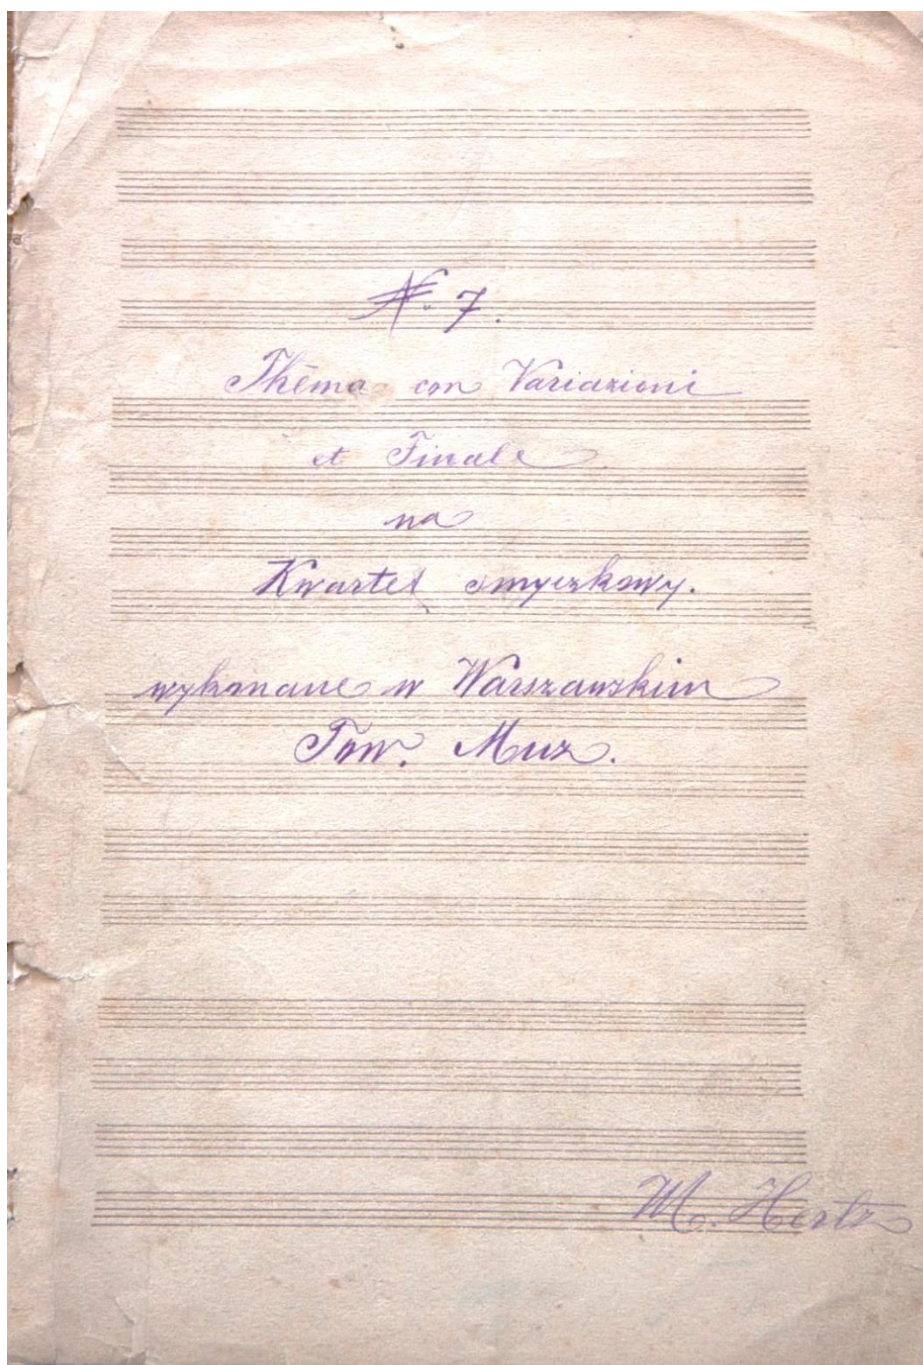 N. 7.
Thema con Variazioni
et Finale
na
Kwartet smyczkowy.
wykonane w Warszawskim
Tow. Muz.
M. Hertz